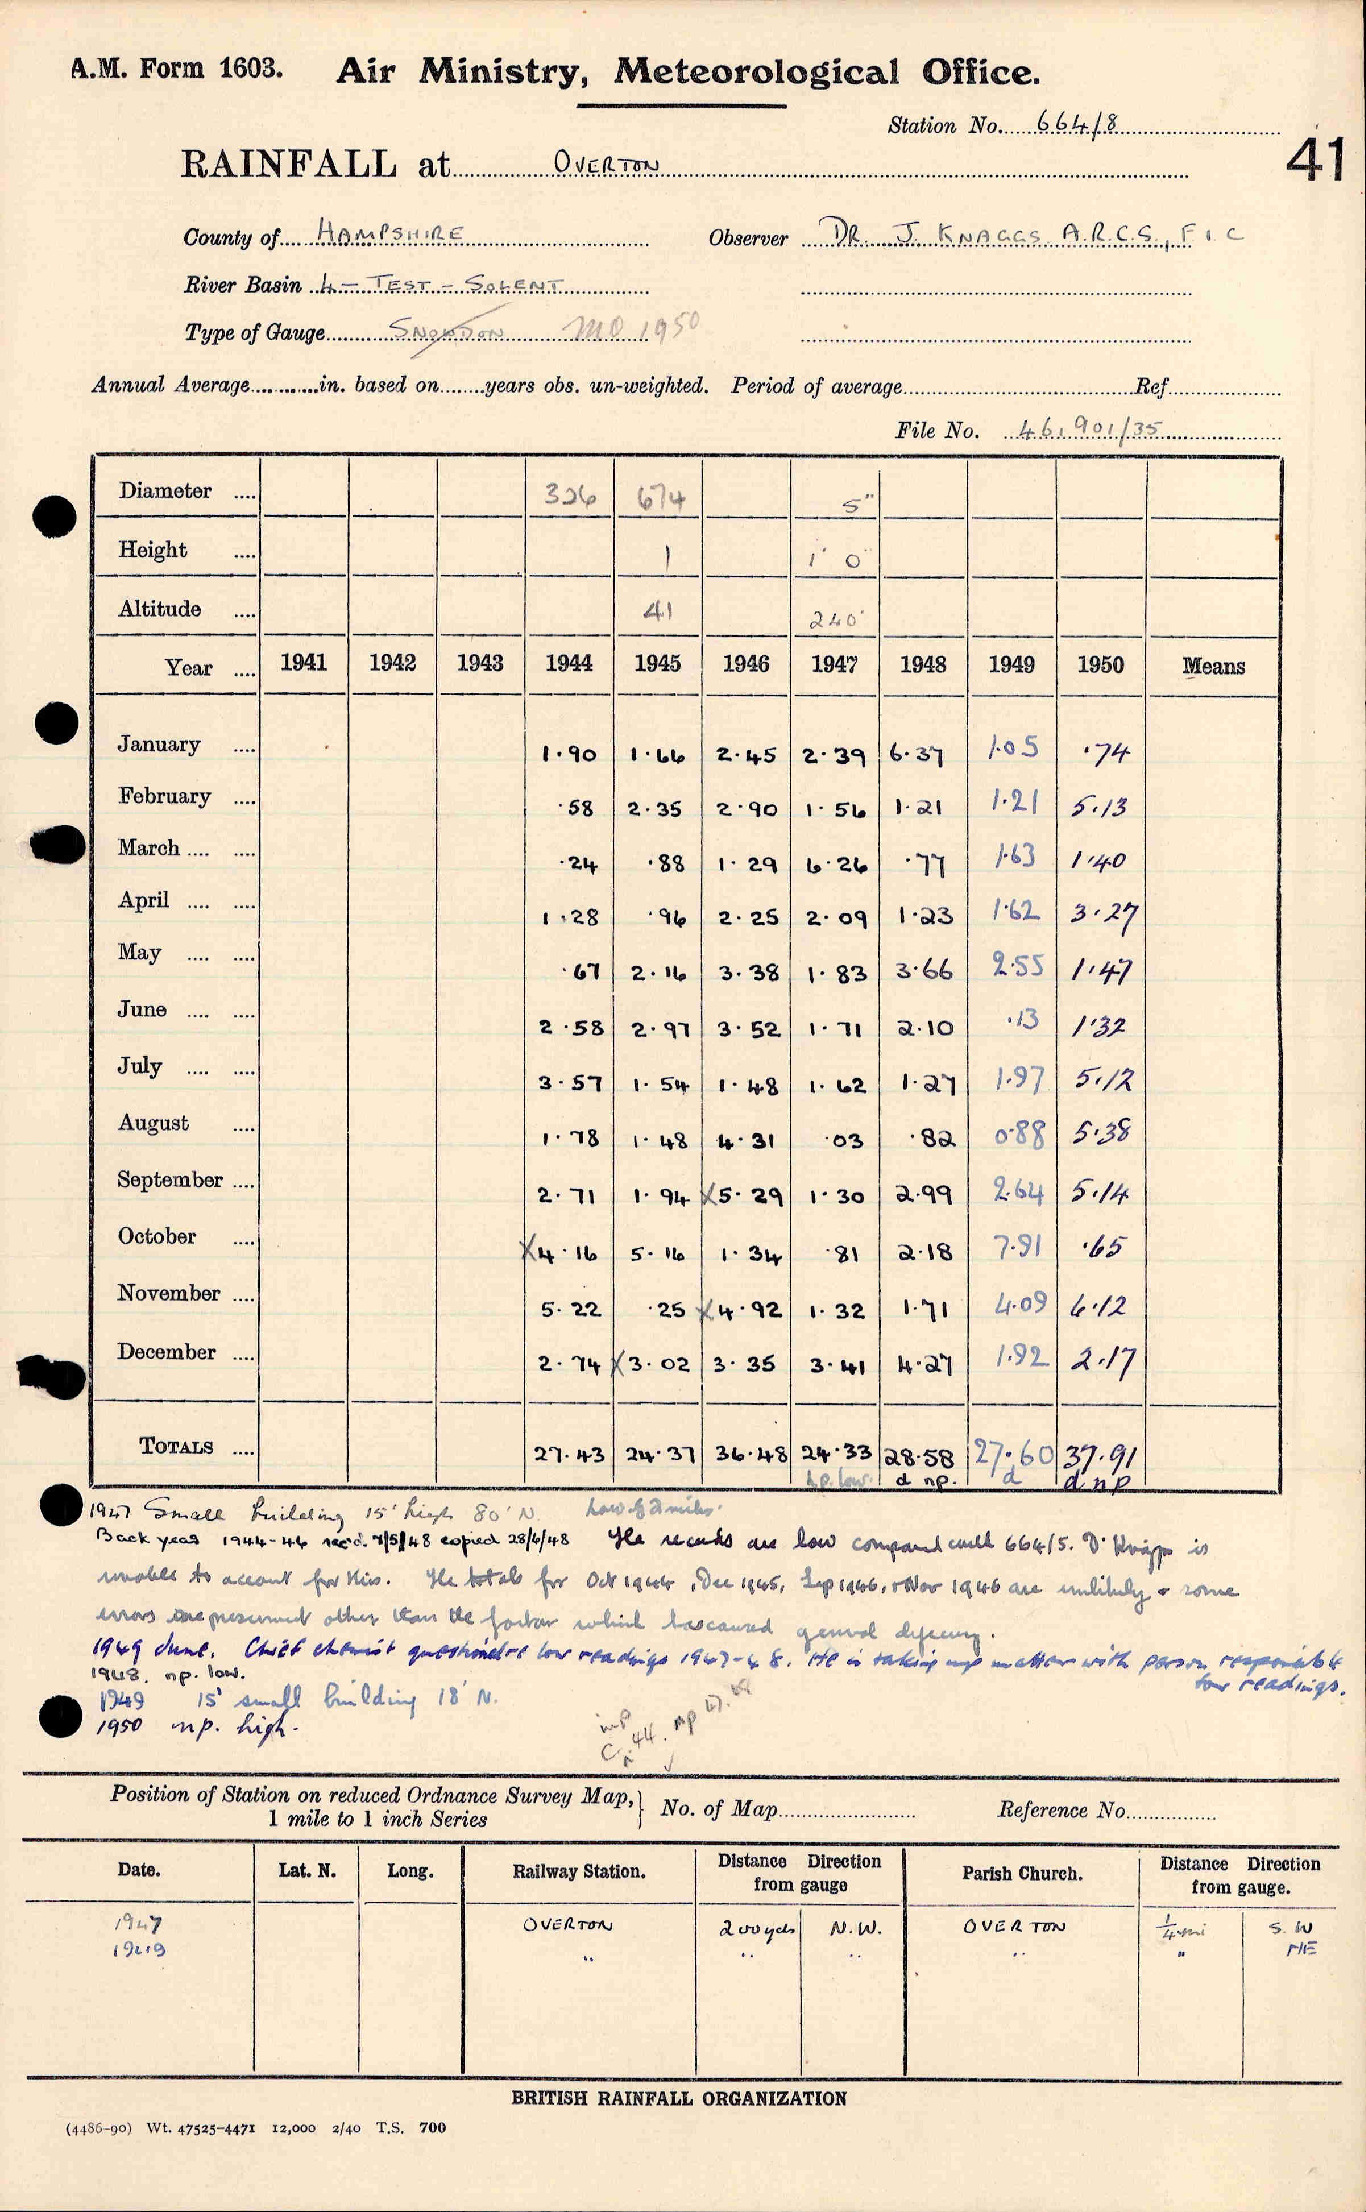 A.M. Form 1603. Air Ministry, Meteorological Office.
Station No. 664/8
41
RAINFALL at OVERTON
County of HAMPSHIRE Observer DR. J. KNAGGS. A.R.C.S., F.I.C
River Basin 4 – TEST – SOLENT
Type of Gauge SNOWDON MO 1950
Annual Average in. based on years obs. un-weighted. Period of average Ref.
File No. 461901/35
Diameter .... 326 674 5"
Height .... 1 1' 0"
Altitude .... 41 240'
Year .... 1941 1942 1943 1944 1945 1946 1947 1948 1949 1950 Means
January .... 1.90 1.66 2.45 2.39 6.37 1.05 .74
February .... .58 2.35 2.90 1.56 1.21 1.21 5.13
March .... .... .24 .88 1.29 6.26 .77 1.63 1.40
April .... .... 1.28 .96 2.25 2.09 1.23 1.62 3.27
May .... .... .67 2.16 3.38 1.83 3.66 2.55 1.47
June .... .... 2.58 2.97 3.52 1.71 2.10 .13 1.32
July .... .... 3.57 1.54 1.48 1.62 1.27 1.97 5.12
August .... 1.78 1.48 4.31 .03 .82 0.88 5.38
September .... 2.71 1.94 X5.29 1.30 2.99 2.64 5.14
October .... X4.16 5.16 1.34 .81 2.18 7.91 .65
November .... 5.22 .25 X4.92 1.32 1.71 4.09 6.12
December .... 2.74 X3.02 3.35 3.41 4.27 1.92 2.17
TOTALS .... 27.43 24.37 36.48 24.33 28.58 27.60 37.91
n.p. low. d np. d d n p
1947 Small building 15' high 80' N. Low of 2 miles.
Back years 1944-46 rec'd. 7/5/48 copied 28/6/48 The records are low compared with 664/5. Dr Knaggs is
unable to account for this. The totals for Oct 1944, Dec 1945, Sep 1946, & Nov 1946 are unlikely & some
errors are present other than the factor which has caused general deficiency.
1949 June. Chief chemist questioned re low readings 1947-48. He is taking up matter with person responsible
for readings.
1948. np. low.
1949 15' small building 18' N.
1950 n.p. high.
Position of Station on reduced Ordnance Survey Map, 1 mile to 1 inch Series } No. of Map Reference No.
Date. Lat. N. Long. Railway Station. Distance Direction from gauge Parish Church. Distance Direction from gauge.
1947 OVERTON 200 yds N.W. OVERTON 1/4 mi S.W
1949 " " " " " NE
BRITISH RAINFALL ORGANIZATION
(4486-90) Wt. 47525-4471 12,000 2/40 T.S. 700